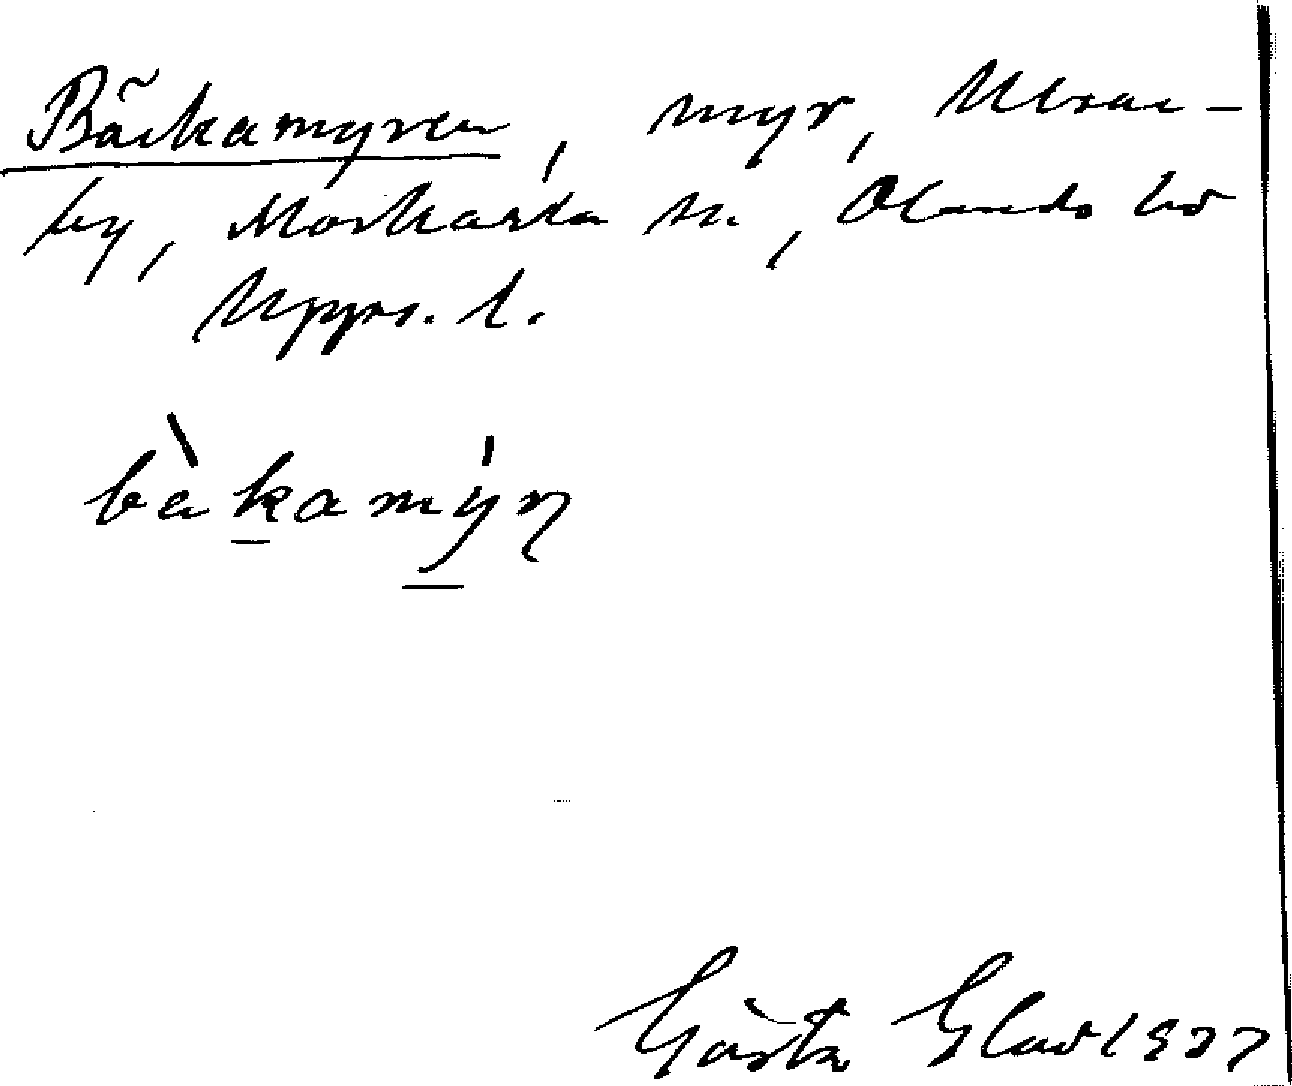 Bäckamyren, myr, Ubrac-
by, Morkarla sn, Olands hd
Upps. l.
bàkamýn
Gösta Glad 1937